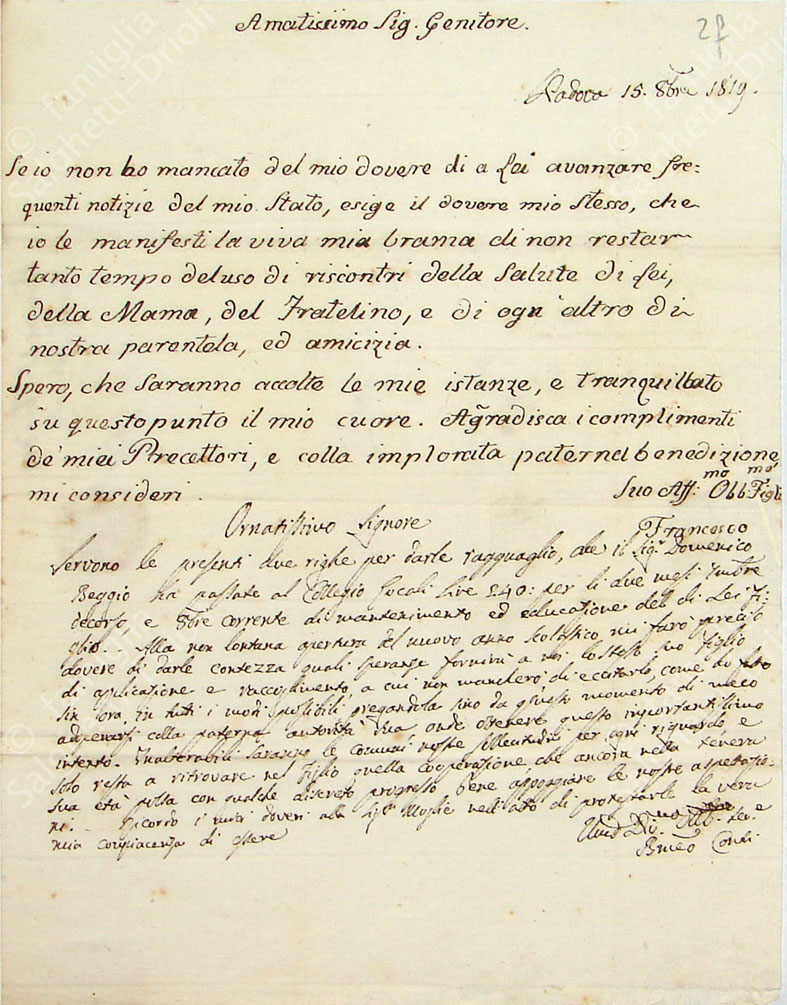 Amatissimo Sig. Genitore.
27
Padova 15. 8bre 1819.
Se io non ho mancato del mio dovere di a Lei avanzare fre=
quenti notizie del mio Stato, esige il dovere mio stesso, che
io le manifesti la viva mia brama di non restar
tanto tempo deluso di riscontri della Salute di Lei,
della Mama, del Fratelino, e di ogn' altro di
nostra parentela, ed amicizia.
Spero, che Saranno accolte le mie istanze, e tranquillato
su questo punto il mio cuore. Aggradisca i complimenti
de' miei Precettori, e colla implorata paterna benedizione
mi consideri.
Suo Aff:mo Obb:mo Figli
Francesco
Ornatissimo Signore
Servono le presenti due righe per darle ragguaglio, che il Sigr Domenico
Beggio ha passate al Collegio locali Lire 240: per li due mesi 7mbre
decorso, e 8bre corrente di mantenimento ed educatione dell di Lei Fi=
glio. Alla non lontana apertura del nuovo anno scolastico, mi farò preciso
dovere di darle contezza quali speranze fornirà a noi lo stesso suo Figlio
di applicazione e raccoglimento, a cui non mancherò di eccitarlo, come ho fatto
sin ora, in tutti i modi possibili pregandola sino da questo momento di meco
adoperarsi colla paterna autorità Sua onde ottenere questo importantissimo
intento. Inalterabili saranno le comuni nostre sollecitudini per ogni riguardo, e
solo resta a ritrovare nel Figlio quella cooperazione, che ancora nella tenera
sua età possa con qualche discreto progresso bene appoggiare le nostre aspettazio=
ni. Ricordo i miei doveri alla Sigra Moglie nell'atto di protestarle la vera
mia compiacenza di essere
Umo Divmo Obb. Ser.e
Conti
© famiglia
Salghetti-Drioli